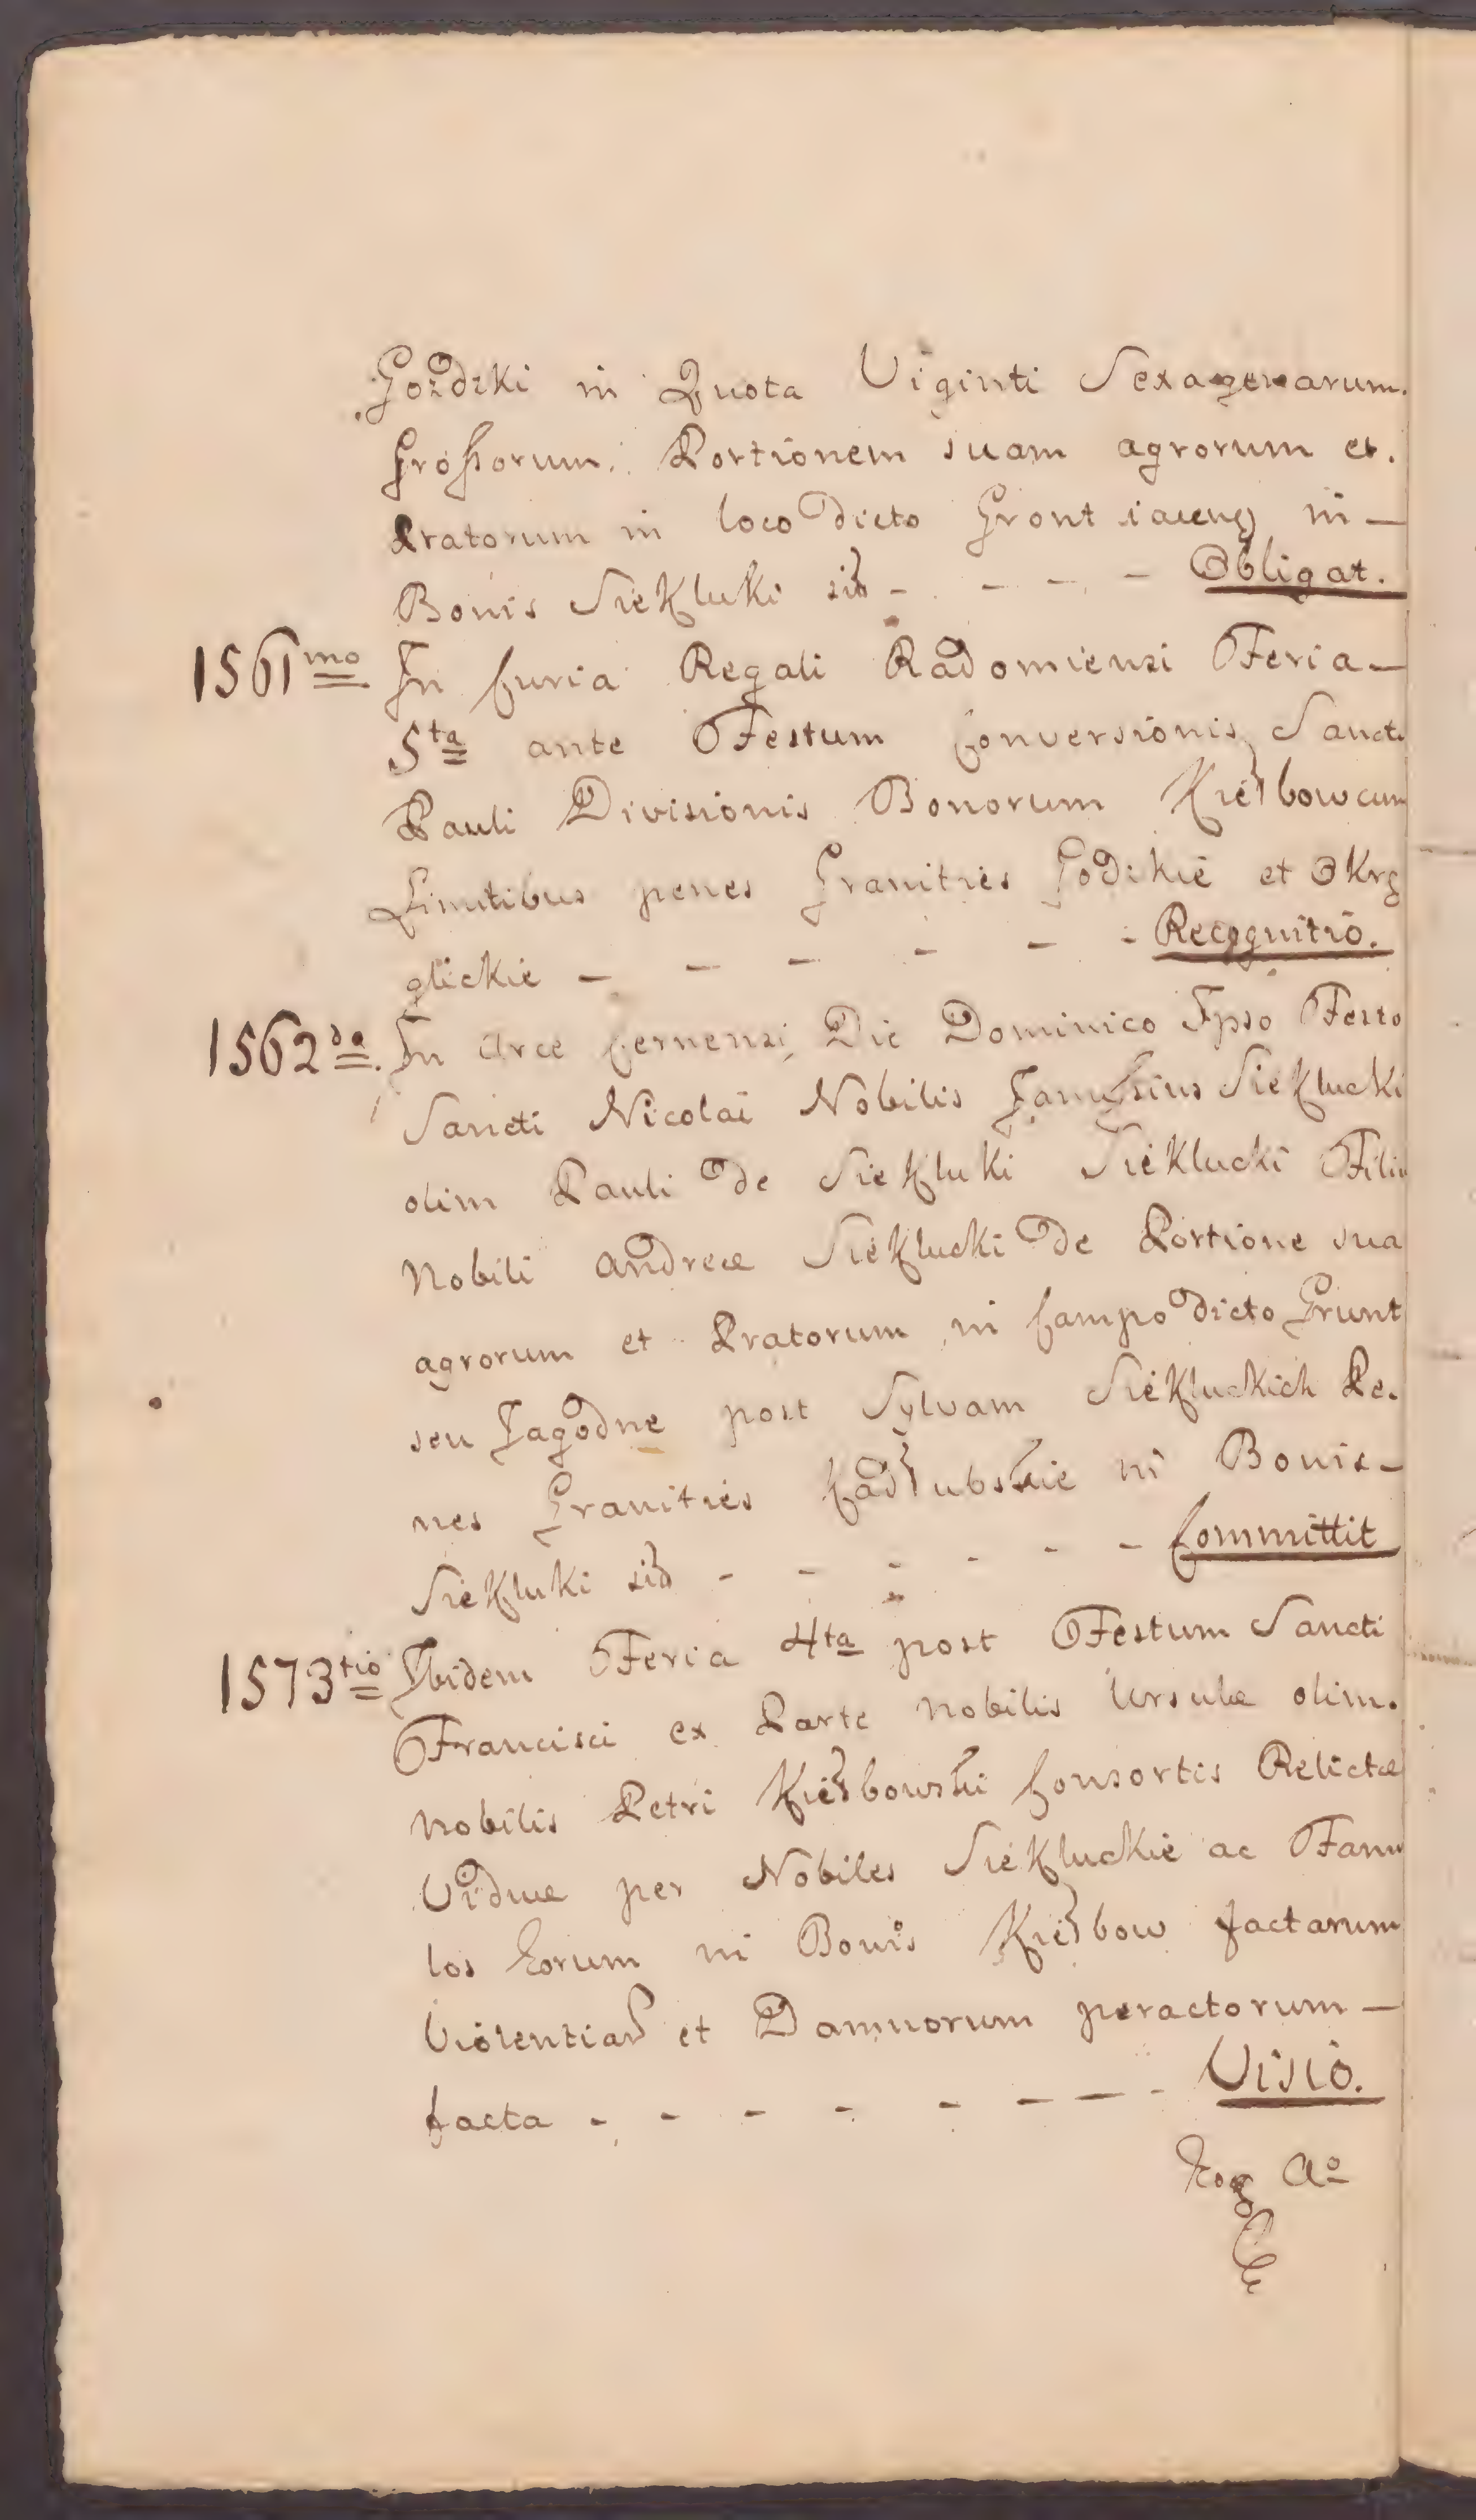 Gozdzki in Quota Viginti Sexagenarum.
Grossorum. Portionem suam agrorum et.
Pratorum in loco dicto Gront iacen in —
Bonis Siekluki sib - - - - Obligat.
1561mo In Curia Regali Radomiensi Feria —
5ta ante Festum Conversionis Sancti
Pauli Divisionis Bonorum Kiełbow cum
Limitibus penes Granities Godzkie et Okrą
glickie - - - - - - Recognitio.
1562da. In Arce Cernensi Die Dominico Ipso Festo
Sancti Nicolai Nobilis Janussius Siekłucki
olim Pauli de Siekluki Sieklucki Filiu
Nobili Andreæ Sieklucki de Portione sua
agrorum et Pratorum in Campo dicto Grunt
seu Jagodne post Sylvam Siekluckich Pe.
nes Granities Kadłubskie in Bonis —
Siekluki sib - - - - - - Committit
1573tio Ibidem Feria 4ta post Festum Sancti
Francisci ex Parte Nobilis Ursulæ olim.
Nobilis Petri Kiełbowski Consortis Relictæ
Viduæ per Nobiles Siekluckie ac Famu
los Eorum in Bonis Kiełbow factarum
Violentiar et Damnorum peractorum —
facta - - - - - - - - Visio.
Eo A°